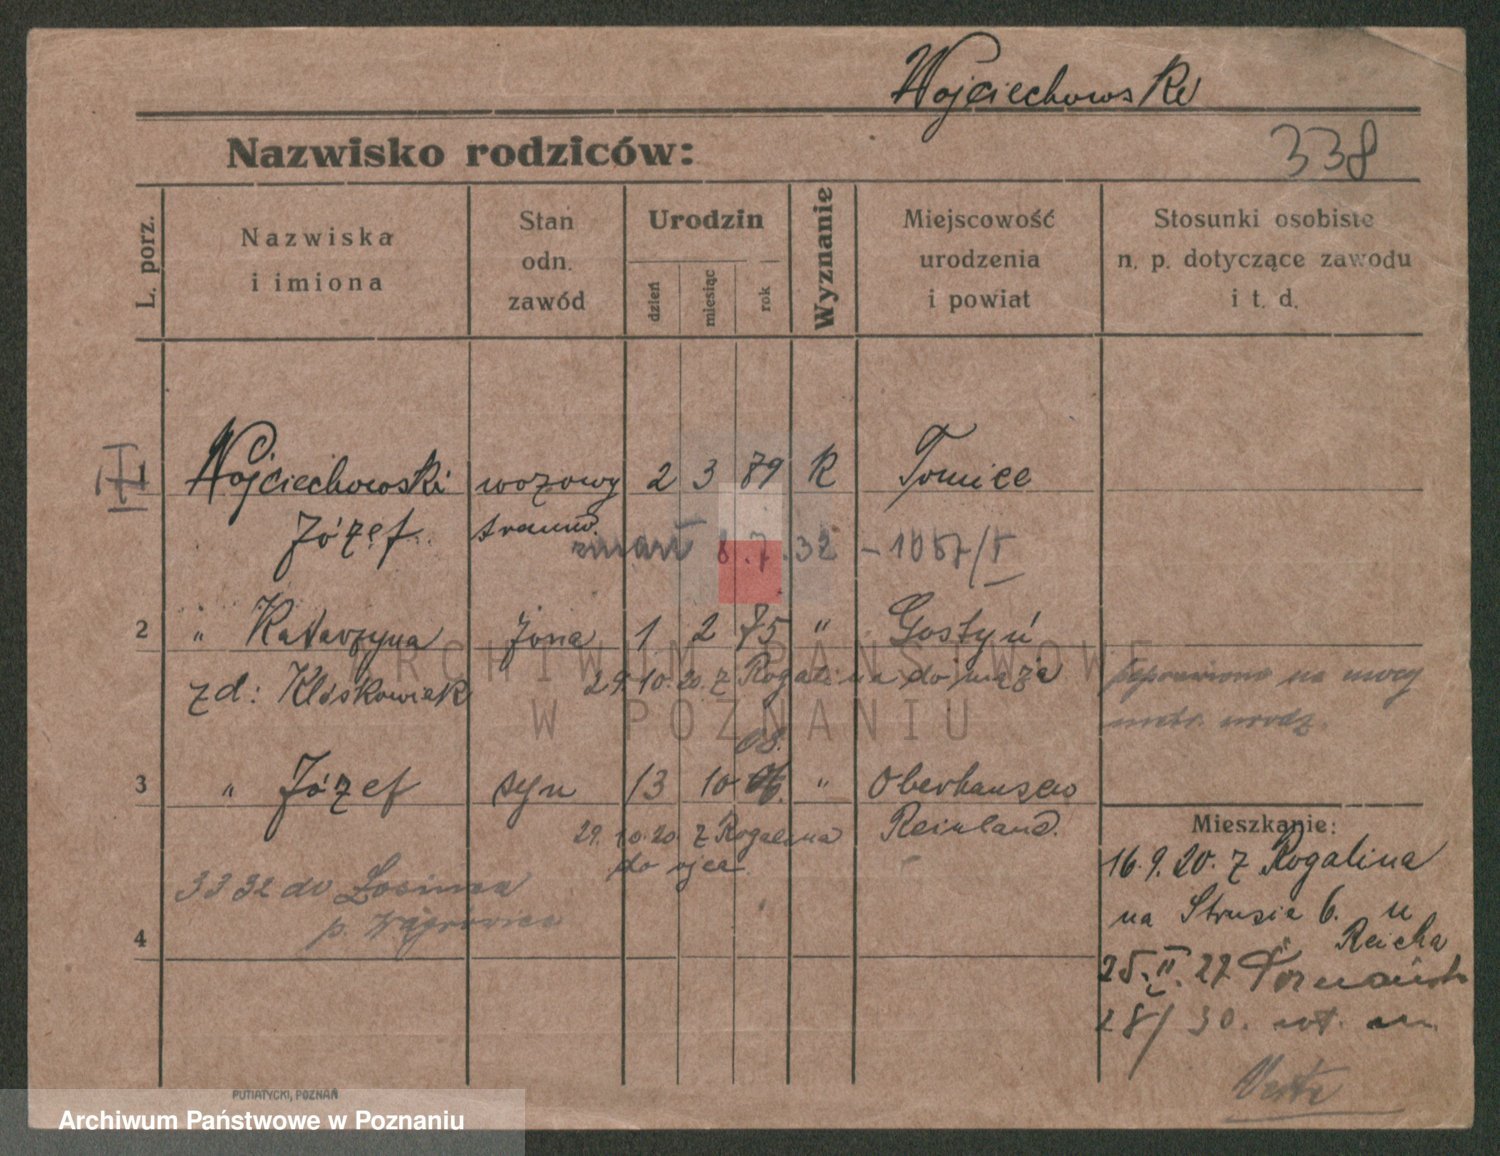 Wojciechowski
Nazwisko rodziców:
338
L. porz.
Nazwiska
i imiona
Stan
odn.
zawód
Urodzin
dzień
miesiąc
rok
Wyznanie
Miejscowość
urodzenia
i powiat
Stosunki osobiste
n. p. dotyczące zawodu
i t. d.
1 Wojciechowski wozowy 2 3 79 R Tomice
Józef
zmarł 6.7.32 – 1057/V
2 " Katarzyna żona 1 2 75 " Gostyń
zd: Kloskowiak 29.10.20. z Rogalina do męża
poprawiono na mocy
metr. urodz.
08.
3 " Józef syn 13 10 " Oberhausen
29.10.20 z Rogalina Reinland.
do ojca.
Mieszkanie:
16.9.20. z Rogalina
na Strusia 6. u
Reicha
3 3 32 do
p. Wągrowiec
4
25.II.27
28/ 30.
ARCHIWUM PAŃSTWOWE
W POZNANIU
PUTIATYCKI, POZNAŃ
Archiwum Państwowe w Poznaniu